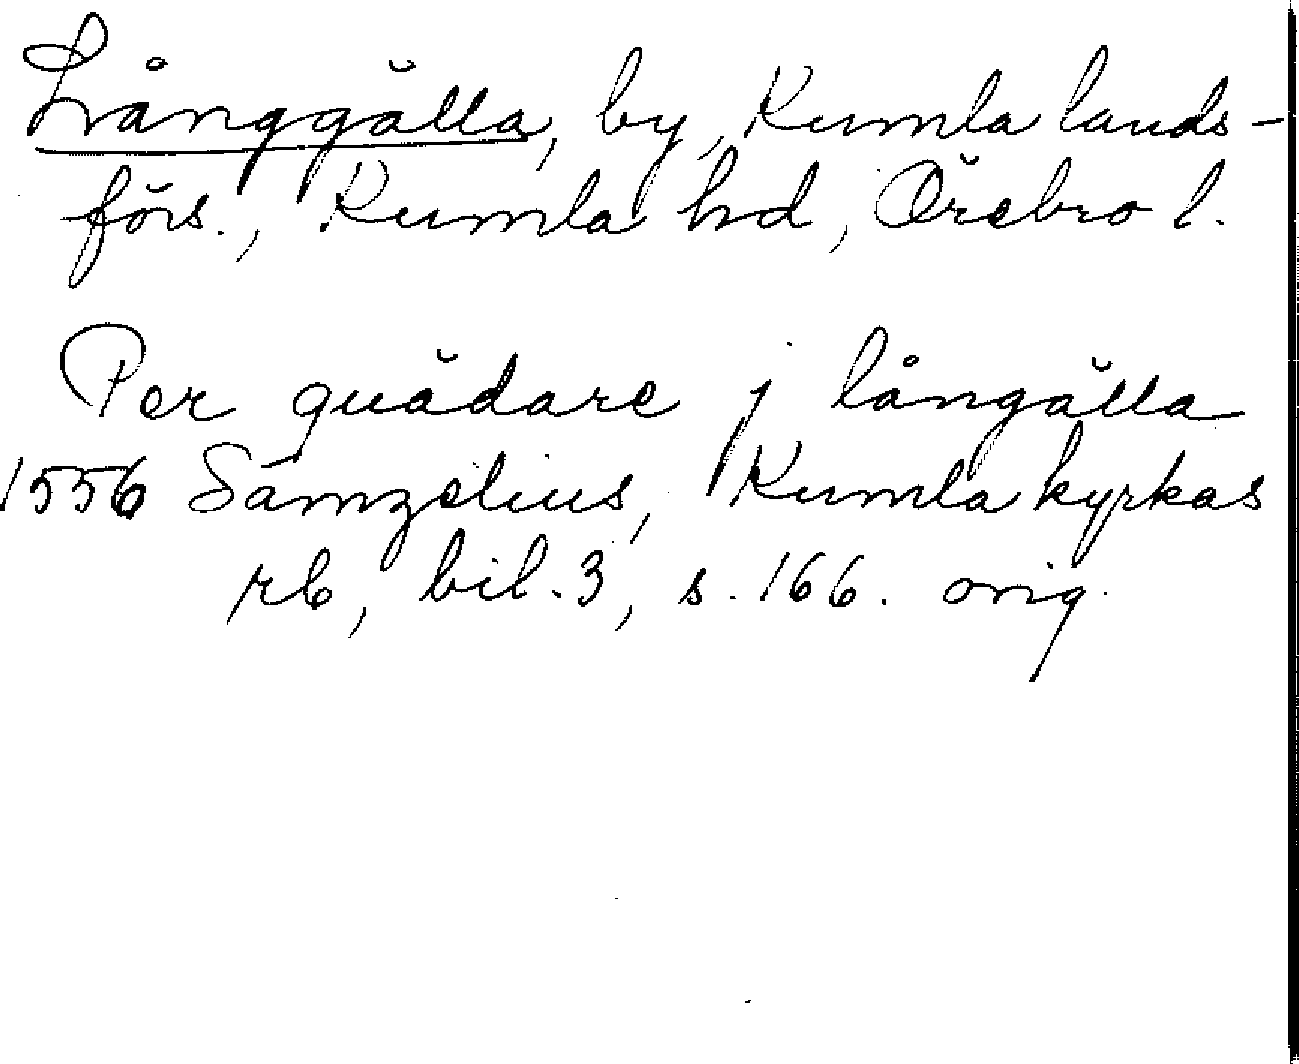 Långgälla, by, Kumla lands-
förs., Kumla hd, Örebro l.
Per quädare j långälla
1556 Sámzelius, Kumla kyrkas
rb, bil. 3, s. 166. orig.